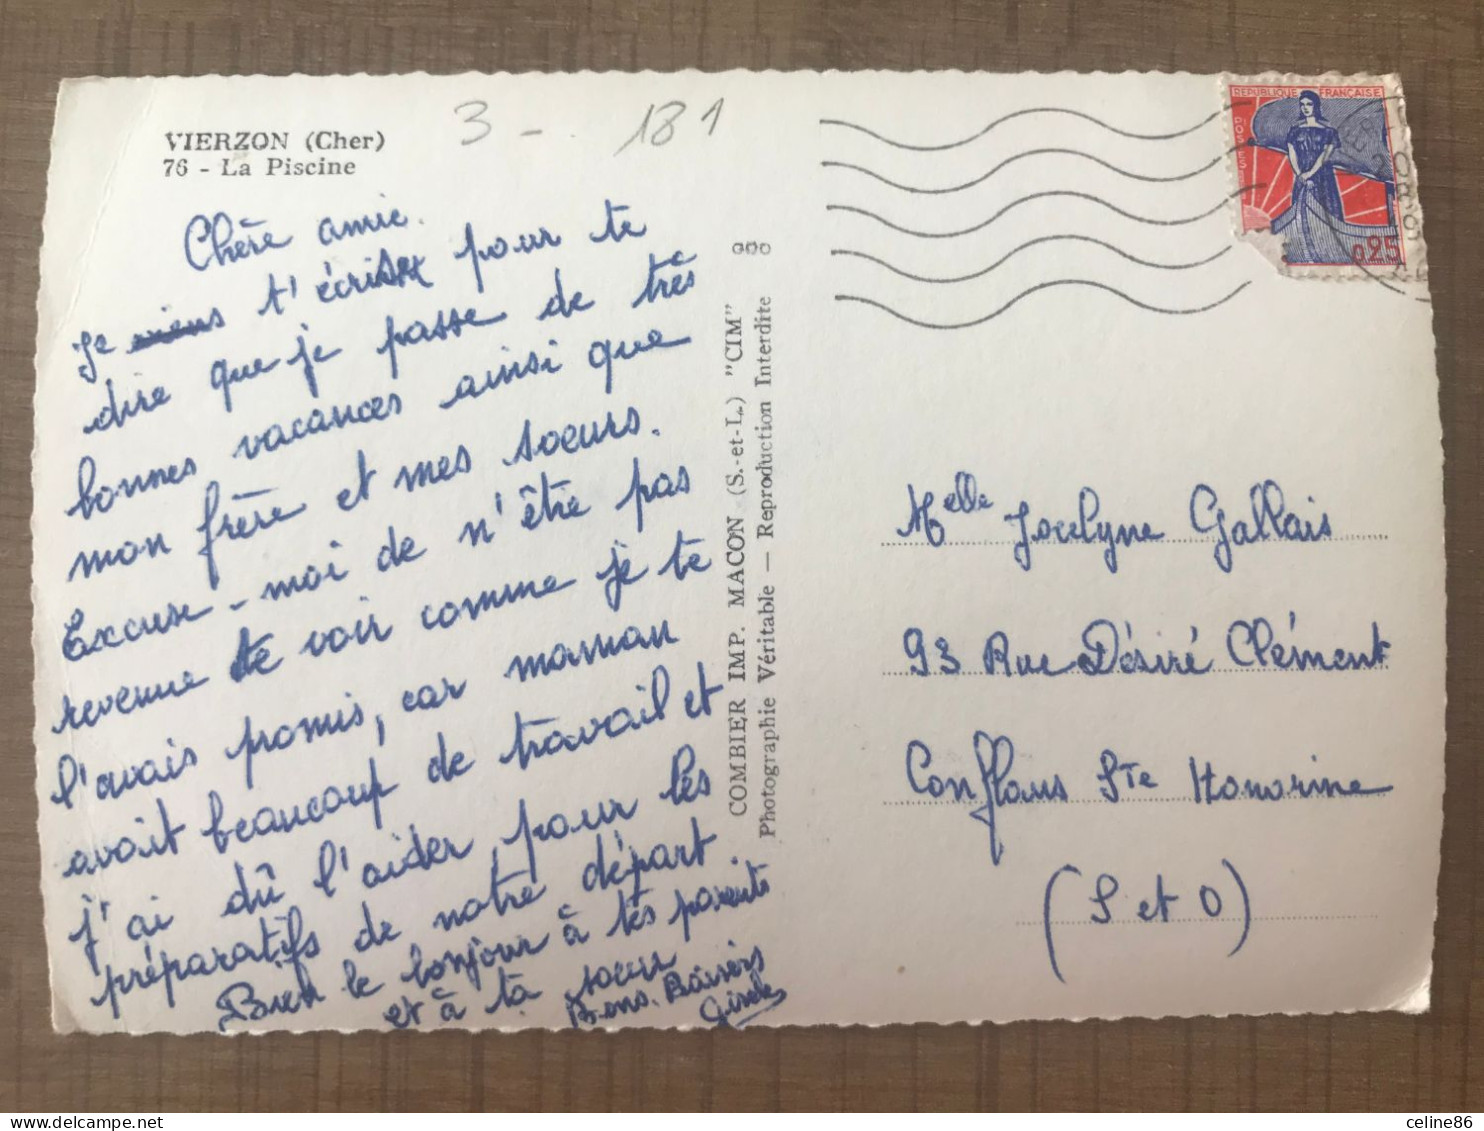 3 - 181
VIERZON (Cher)
76 - La Piscine
Chère amie.
Je viens t'écrire pour te
dire que je passe de très
bonnes vacances ainsi que
mon frère et mes soeurs.
Excuse-moi de n'être pas
revenue te voir comme je te
l'avais promis, car maman
avait beaucoup de travail et
j'ai dû l'aider pour les
préparatifs de notre départ
Bien le bonjour à tes parents
et à ta soeur
Bons Baisers
Gisele
COMBIER IMP. MACON (S.-et-L.) "CIM"
Photographie Véritable — Reproduction Interdite
REPUBLIQUE FRANÇAISE
POSTES
0,25
Melle Jocelyne Gallais
93 Rue Désiré Clément
Conflans Ste Honorine
(S et O)
celine86